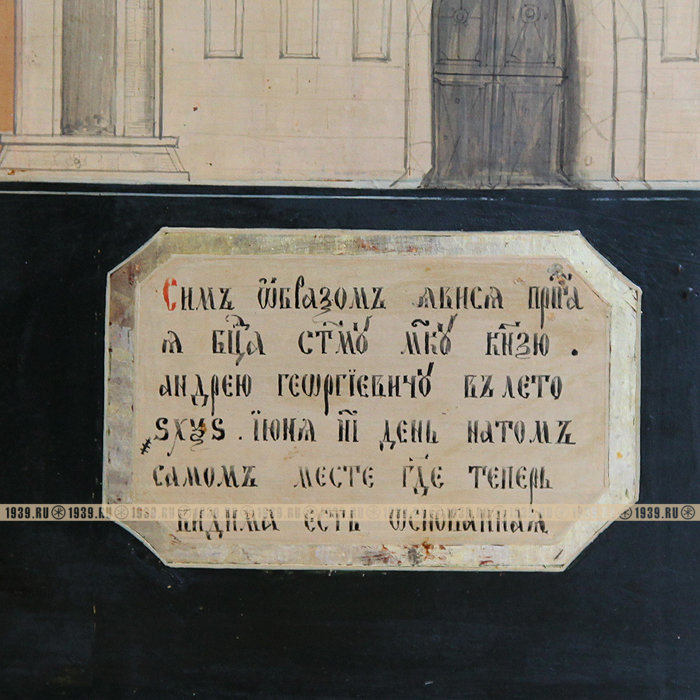 Симъ ѡбразомъ ꙗвися прⷭ҇та
ѧ бц҃а ст҃мꙋ мч҃кꙋ кн҃зю .
андрею геѡргїевичꙋ въ лето
ѕхѯѕ . їюня ïи҃ день натомъ
самомъ месте где теперь
видима есть ѡснованная
1939.RU 1939.RU 1939.RU 1939.RU